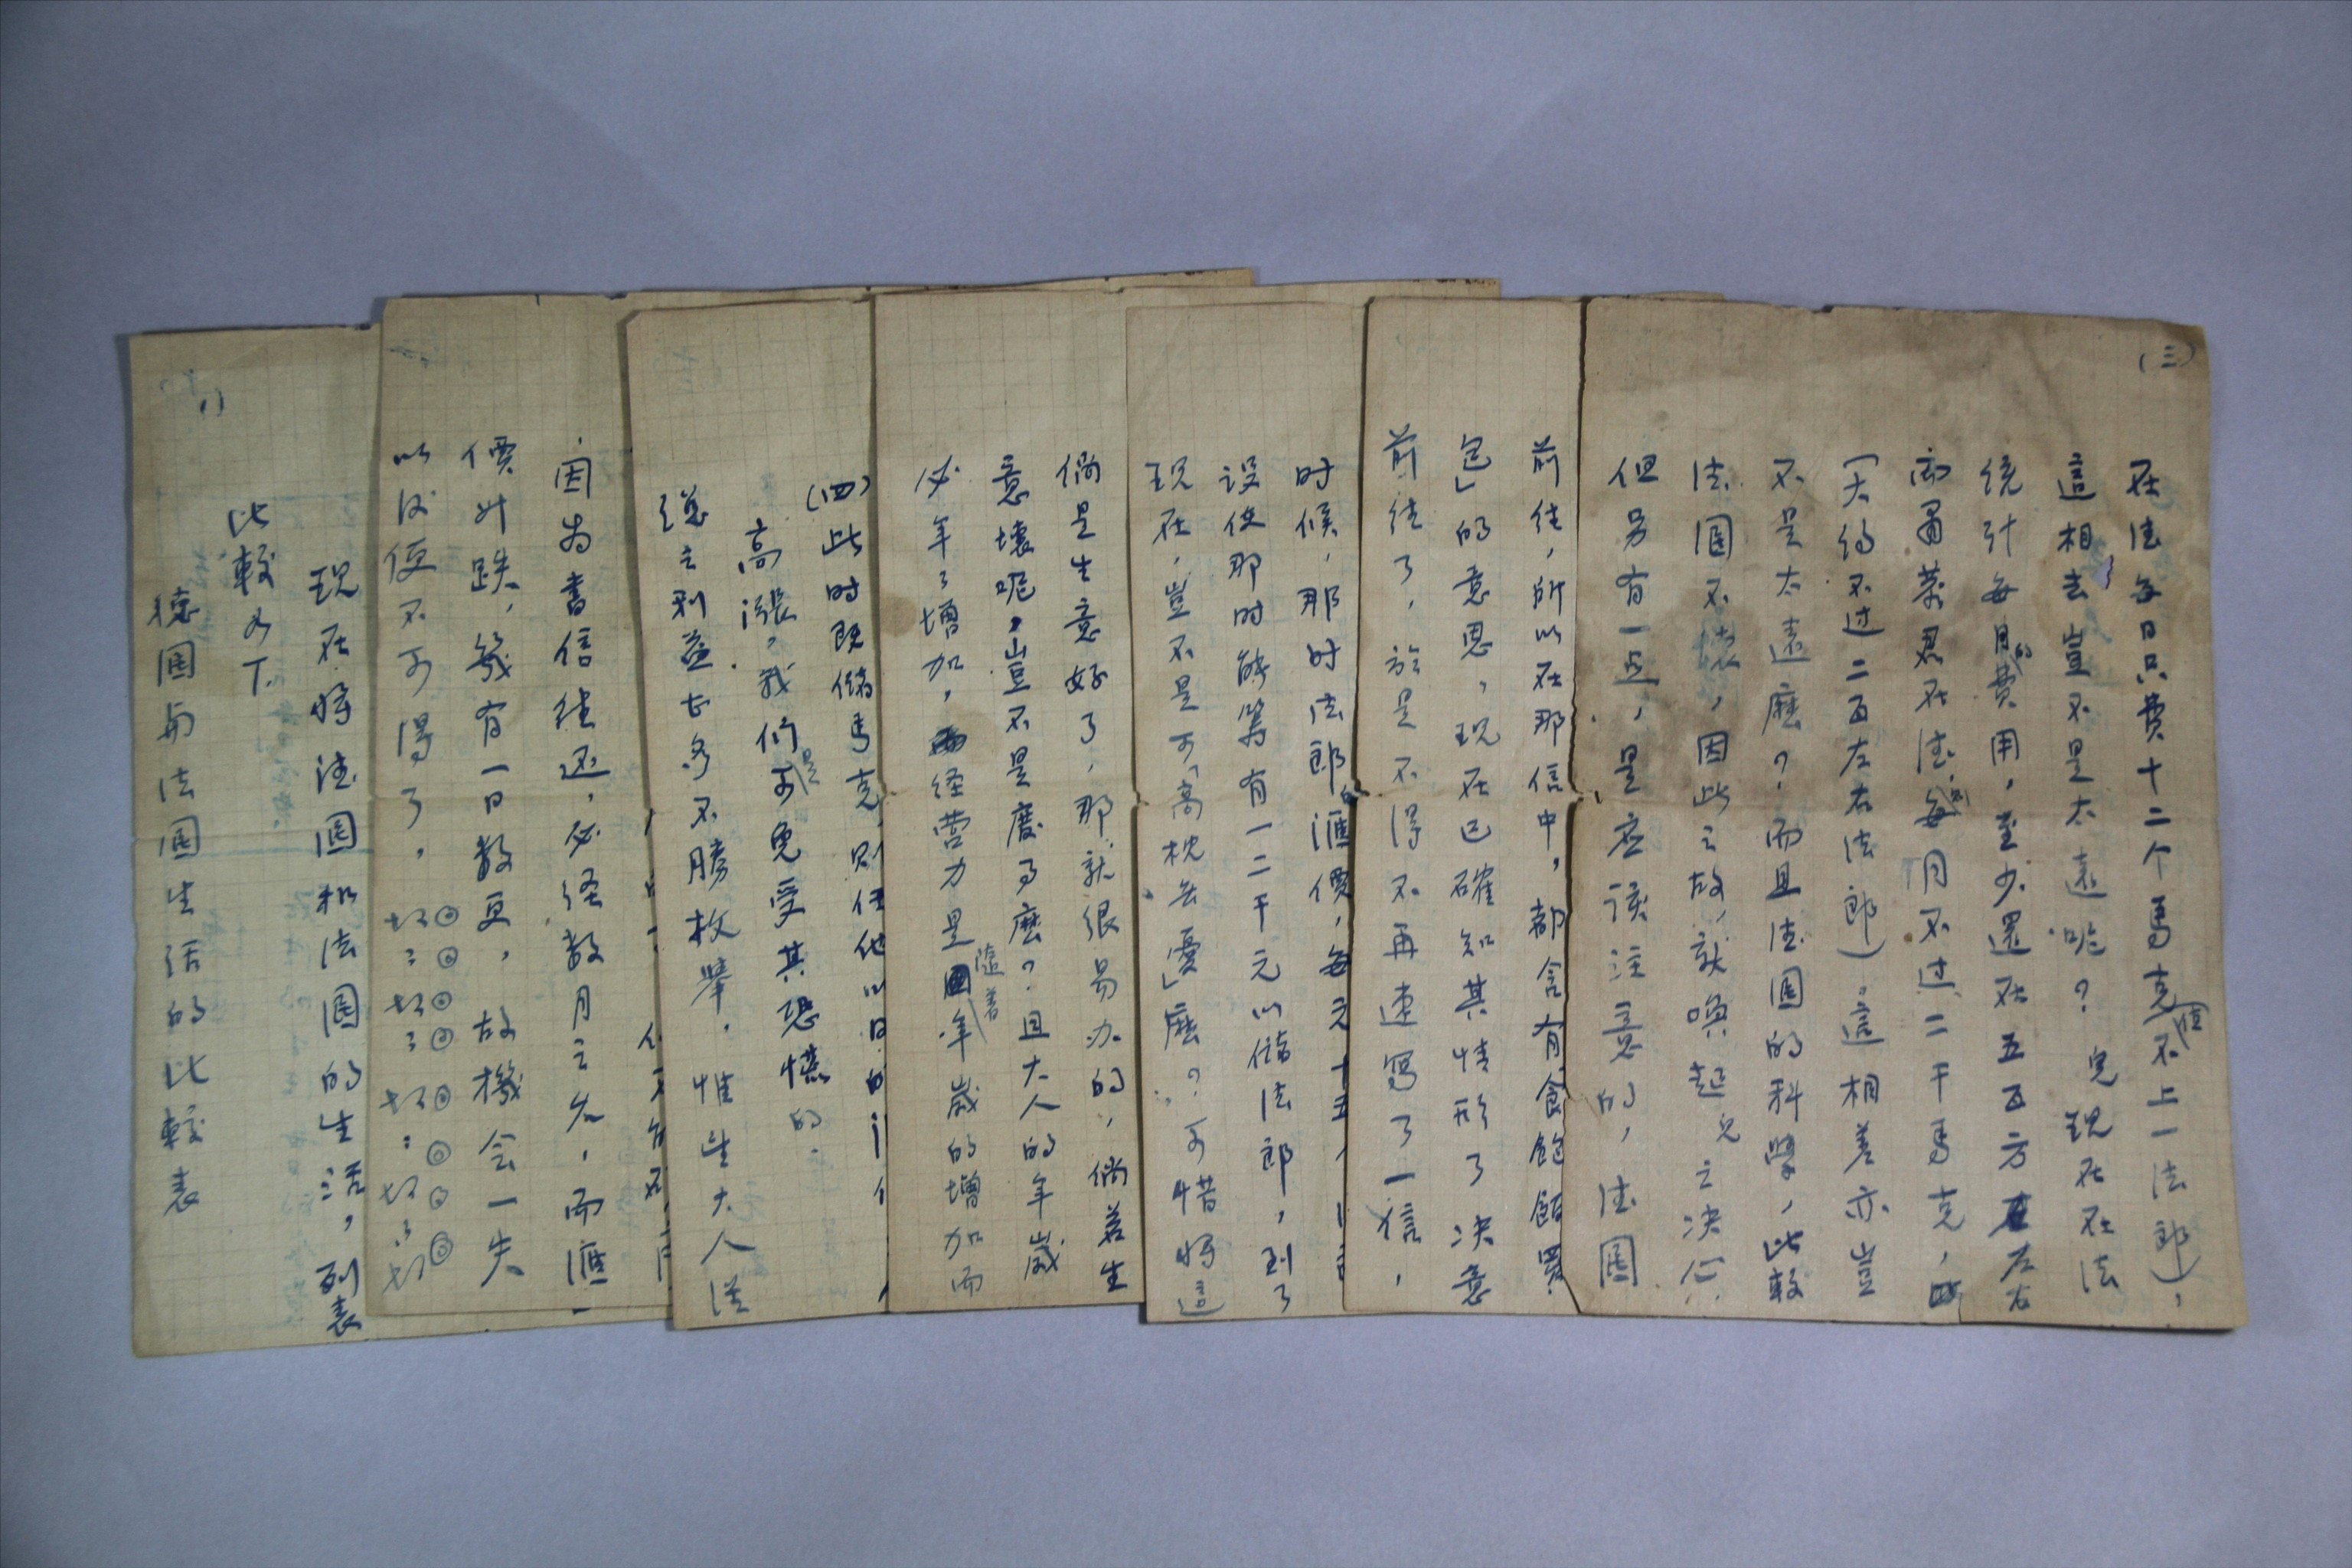 (三)
在德每日只費十二个馬克(值不上一法郎),
這相去豈不是太遠呢?兒現在在法
統計每月的費用,至少還在五百方左右
而
君在德,每月不过二千馬克,
(大約不过二百左右法郎)。這相差亦豈
不是太遠麽?而且德國的科學,比較
法國不壞,因此之故,就喚起兒之决心
但另有一点,是应该注意的,德國
前往,所以在那信中,都含有「食飽餡買
包」的意思,現在已確知其情形了决意
前往了,於是不得不再速寫了一信,
时候,那时法郎的滙價,每元十五
設使那时能籌有一二千元以儲法郎,到了
現在,豈不是可「高枕無憂」麽?可惜將這
倘是生意好了,那就很易办的,倘若生
意壞呢,豈不是废了麽?且大人的年歲
必年了增加,經营力是隨着年歲的增加而
(四)此时既儲馬克,則任他以日的
高漲,我們是可免受其恐慌的.
總之利益甚多不勝枚舉.惟望大人從
因为書信往还,必経数月之久,而滙
價升跌,幾有一日数更,故機会一失
以後便不可得了,
切切切切切
◎◎◎◎◎◎◎◎
現在將德國和法國的生活,列表
比較如下
德國與法國生活的比較表